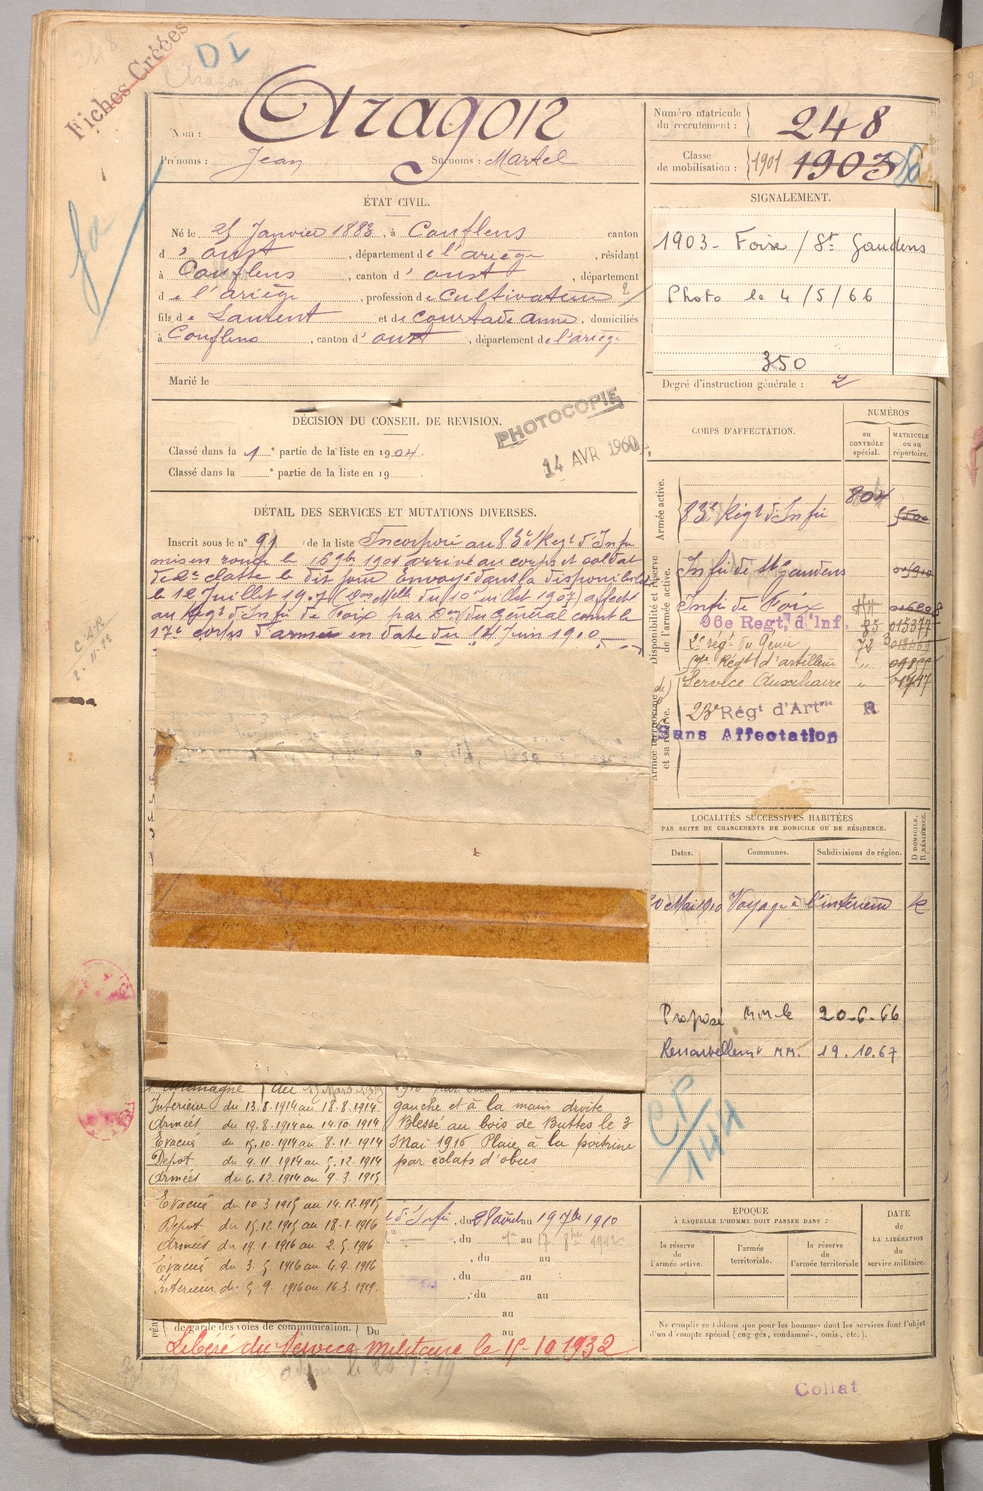 Fiches Créées
DI
Nom : Aragon
Prénoms : Jean Surnoms : Martel
Numéro matricule du recrutement : 248
Classe de mobilisation : 1901 1903
ÉTAT CIVIL.
Né le 25 Janvier 1883, à Couflens canton
d'oust, département de l'ariège, résidant
à Couflens, canton d'oust, département
de l'ariège, profession de cultivateur
fils de Laurent et de courtade anne, domiciliés
à Couflens, canton d'oust, département de l'ariège
Marié le
SIGNALEMENT.
1903 - Foix / St Gaudens
Photo le 4/5/66
350
Degré d'instruction générale : 2
DÉCISION DU CONSEIL DE REVISION.
PHOTOCOPIE
14 AVR 1960
Classé dans la 1e partie de la liste en 1904.
Classé dans la e partie de la liste en 19
DÉTAIL DES SERVICES ET MUTATIONS DIVERSES.
Inscrit sous le n° 91 de la liste Incorporé au 83e Regt d'Infie
mis en route le 16 9bre 1904 arrivé au corps et soldat
de 2e classe le dit jour envoyé dans la disponibilité
le 12 Juillet 1907 (Don Melle du 10 juillet 1907) affecté
au Regt d'Infie de Foix par Don du Général comt le
17e corps d'armée en date du 14 Juin 1910
CORPS D'AFFECTATION.
NUMÉROS
au CONTRÔLE spécial.
MATRICULE ou au répertoire.
Armée active.
83e Régt d'Infie 804
Disponibilité et réserve de l'armée active.
Infie de St Gaudens
Infie de Foix
96e Regt, d'Inf. 85 015377
2e régt du Génie 72
Régt d'artillerie
Service Auxiliaire
Armée territoriale et sa réserve.
23e Régt d'Artie R
Sans Affectation
LOCALITÉS SUCCESSIVES HABITÉES
PAR SUITE DE CHANGEMENTS DE DOMICILE OU DE RÉSIDENCE.
Dates. Communes. Subdivisions de région. D DOMICILE. R RÉSIDENCE.
20 Mai 1910 Voyage à l'intérieur R
Proposé M.M. le 20-6-66
Renouvellemt MM. 19.10.67
CP
144
Intérieur du 13.8.1914 au 18.8.1914
Armées du 19.8.1914 au 14.10.1914
Evacué du 15.10.1914 au 8.11.1914
Dépot du 9.11.1914 au 5.12.1914
Armées du 6.12.1914 au 9.3.1915
Evacué du 10.3.1915 au 14.12.1915
Depot du 15.12.1915 au 18.1.1916
Armées du 19.1.1916 au 2.5.1916
Evacué du 3.5.1916 au 4.9.1916
Intérieur du 5.9.1916 au 16.3.1919
gauche et à la main droite
Blessé au bois de Buttes le 3
Mai 1916 Plaie à la poitrine
par éclats d'obus
d'Infie, du 28 août au 19 7bre 1910
, du au
, du au
, du au
, du au
au
de garde des voies de communication. Du au
Libéré du Service militaire le 15-10-1932
ÉPOQUE
À LAQUELLE L'HOMME DOIT PASSER DANS :
la réserve de l'armée active.
l'armée territoriale.
la réserve de l'armée territoriale
DATE de LA LIBÉRATION du service militaire.
Ne remplir ce tableau que pour les hommes dont les services font l'objet
d'un décompte spécial (engagés, condamnés, omis, etc.).
Collat